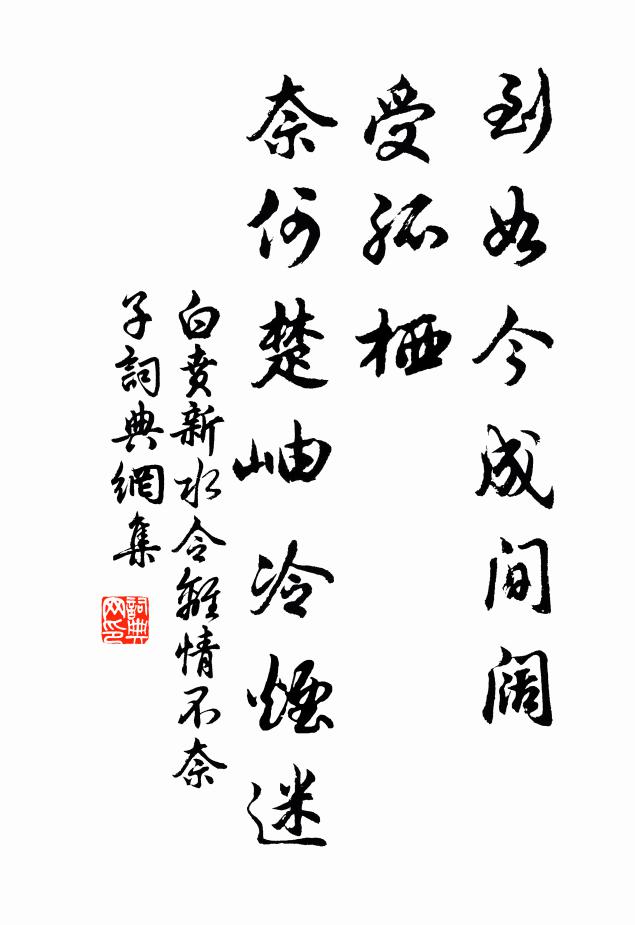 到如今成间阔
受孤栖
奈何楚岫冷煙迷
白賁新水令離情不奈
子詞典網集
詞典网印